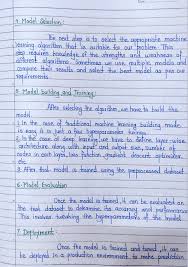 4. Model Selection:
The next step is to select the appropriate machine
learning algorithm that is suitable for our problem. This
step requires knowledge of the strengths and weakness of
different algorithms. Sometimes we use multiple models and
compare their results and select the best model as per our
requirements.
5. Model building and Training:
After selecting the algorithm, we have to build the
model.
1. In the case of traditional machine learning building mode
is easy it is just a few hyperparameter tunings.
2. In the case of deep learning we have to define layer wise
architecture along with input and output size, number of
nodes in each layer, loss function, gradient descent optimizer,
etc.
3. After that model is trained using the preprocessed dataset.
6. Model Evaluation
Once the model is trained, it can be evaluated on
the test dataset to determine its accuracy and performance
This involves tweaking the hyperparameters of the model.
7. Deployment:
Once the model is trained and tuned, it can
be deployed in a production environment to make prediction